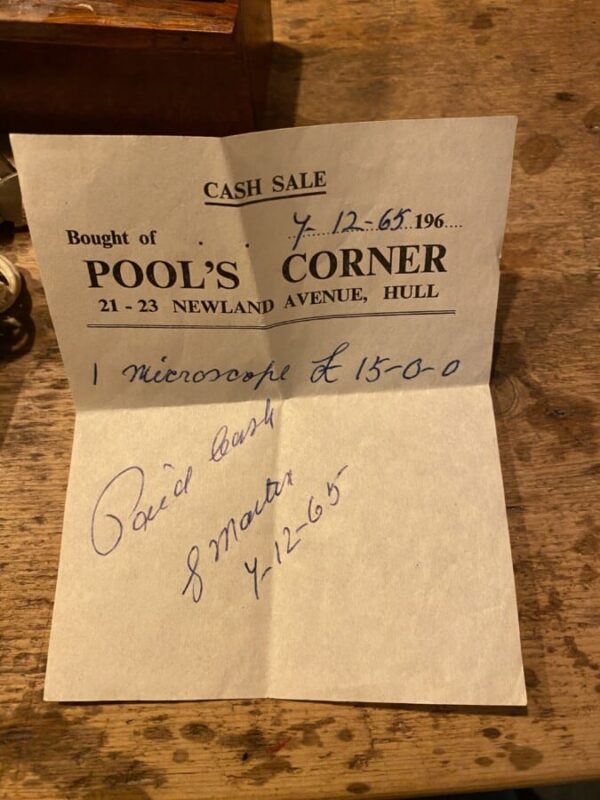 CASH SALE
Bought of . . 7-12-65 196....
POOL'S CORNER
21 - 23 NEWLAND AVENUE, HULL
1 microscope £ 15-0-0
Paid Cash
S Martin
7-12-65